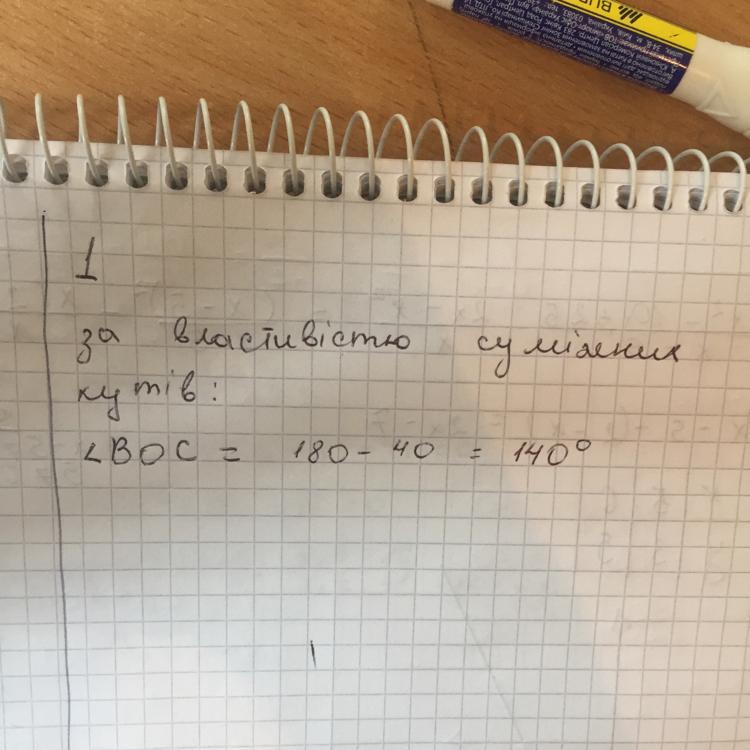 1
за властивістю суміжних
кутів:
∠BOC = 180 - 40 = 140°